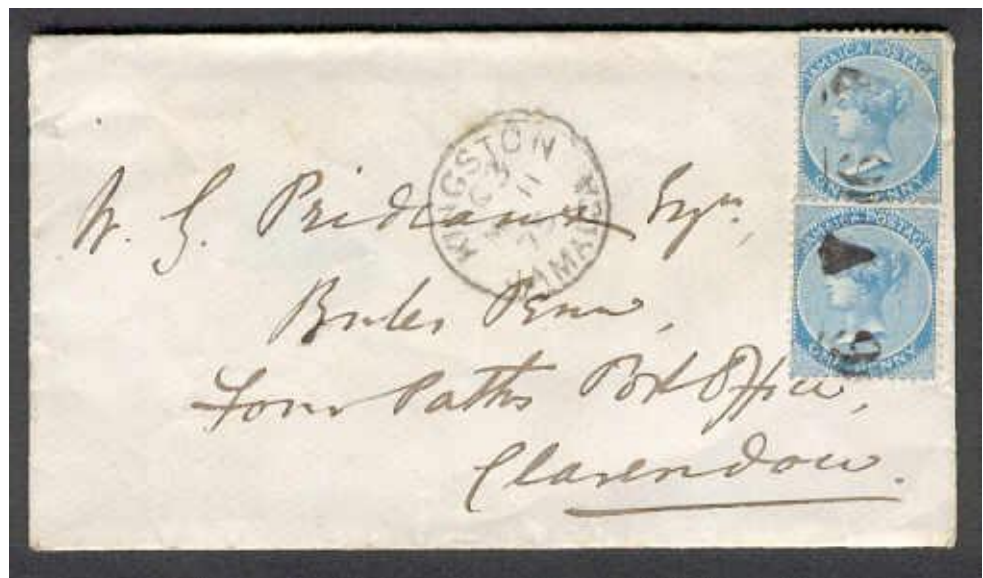 JAMAICA POSTAGE
ONE PENNY
JAMAICA POSTAGE
ONE PENNY
KINGSTON
JAMAICA
W. G. Prideaux Esqr,
Penn,
Four Paths Post Office,
Clarendon.